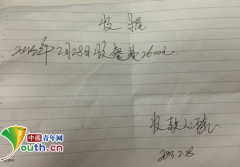 收据
2013年2月28日收餐费26000元
收款人
2013.2.28
中国青年网
youth.cn